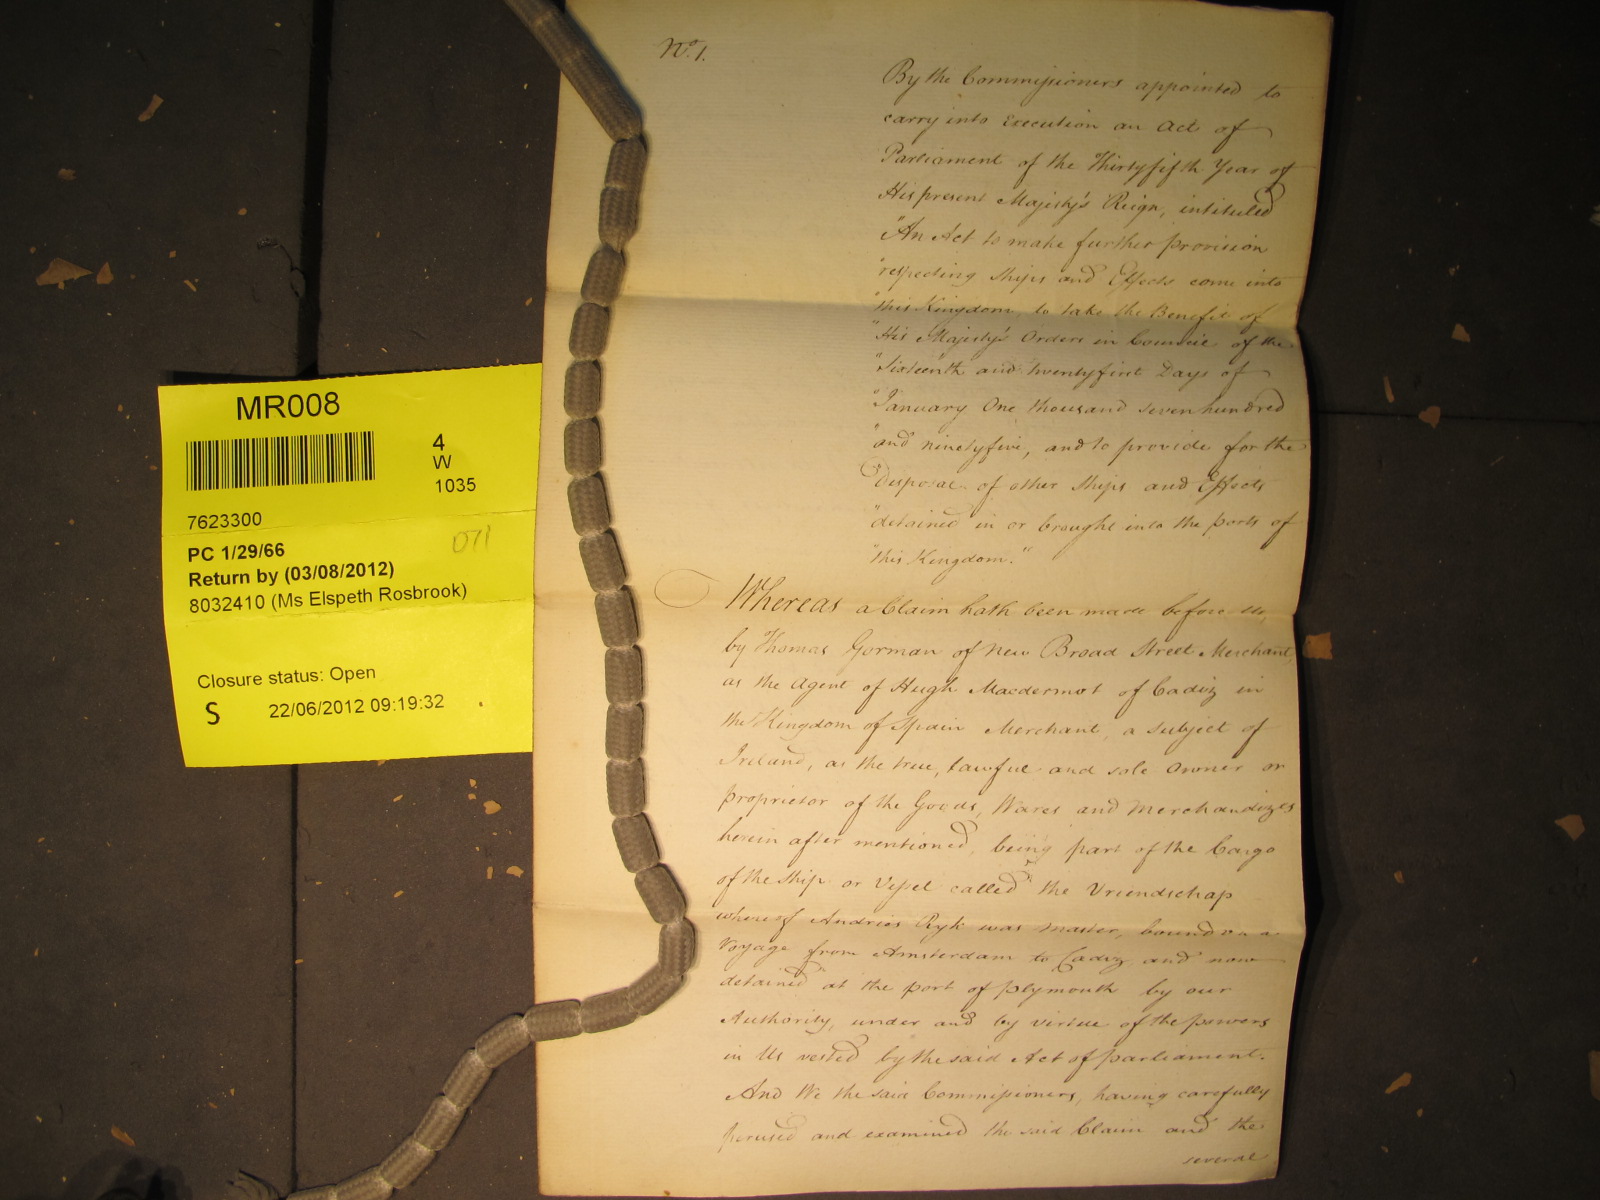 No. 1.
By the Commissioners appointed to
carry into Execution an Act of
Parliament of the Thirtyfifth Year of
His present Majesty's Reign, intituled
"An Act to make further provision
"respecting Ships and Effects come into
"this Kingdom to take the Benefit of
"His Majesty's Orders in Council of the
"Sixteenth and twentyfirst Days of
"January One thousand seven hundred
"and ninetyfive, and to provide for the
"Disposal of other Ships and Effects
"detained in or brought into the ports of
"this Kingdom."
Whereas a Claim hath been made before Us,
by Thomas Gorman of New Broad Street Merchant,
as the Agent of Hugh Macdermot of Cadiz in
the Kingdom of Spain Merchant, a subject of
Ireland, as the true, lawful and sole Owner or
proprietor of the Goods, Wares and Merchandizes
herein after mentioned, being part of the Cargo
of the Ship or Vessel called the Vriendschap
whereof Andries Ryk was master, bound on a
Voyage from Amsterdam to Cadiz and now
detained at the port of Plymouth by our
Authority, under and by virtue of the powers
in Us vested by the said Act of parliament.
And We the said Commissioners, having carefully
perused and examined the said Claim and the
several
MR008
4
W
1035
7623300
071
PC 1/29/66
Return by (03/08/2012)
8032410 (Ms Elspeth Rosbrook)
Closure status: Open
S 22/06/2012 09:19:32